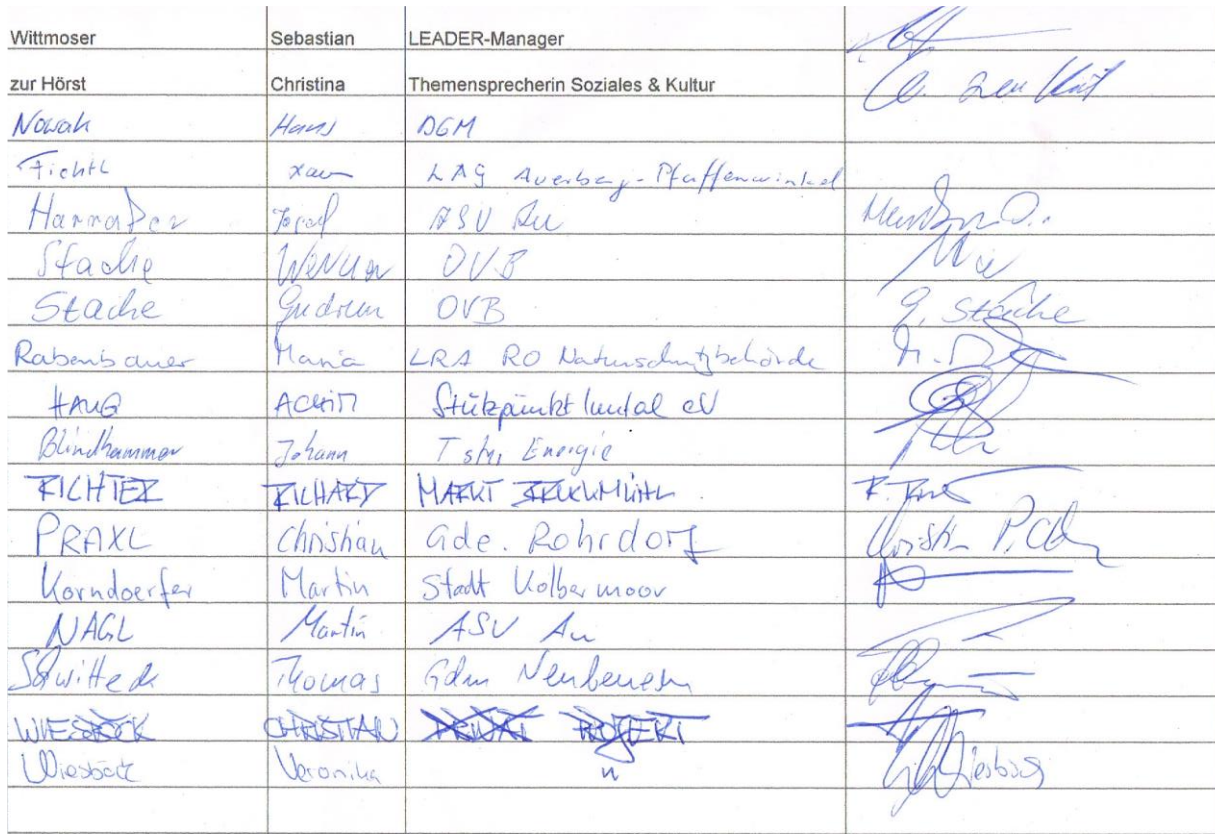 Wittmoser Sebastian LEADER-Manager
zur Hörst Christina Themensprecherin Soziales & Kultur
Nowak Hans DGM
Fichtl LAG Auerberg-Pfaffenwinkel
Josef ASV Au
Stache Werner OVB
Stache Gudrun OVB G. Stache
Rabenbauer Maria LRA RO Naturschutzbehörde
HAUG ACHIM Stützpunkt Inntal eV
Blindhammer Johann Energie
RICHTER RICHARD MARKT BRUCKMÜHL
PRAXL Christian Gde. Rohrdorf
Korndoerfer Martin Stadt Kolbermoor
NAGL Martin ASV Au
Thomas Gdm Neubeuern
WIESBÖCK CHRISTIAN PRIVAT PROJEKT
Wiesböck Veronika " Wiesböck